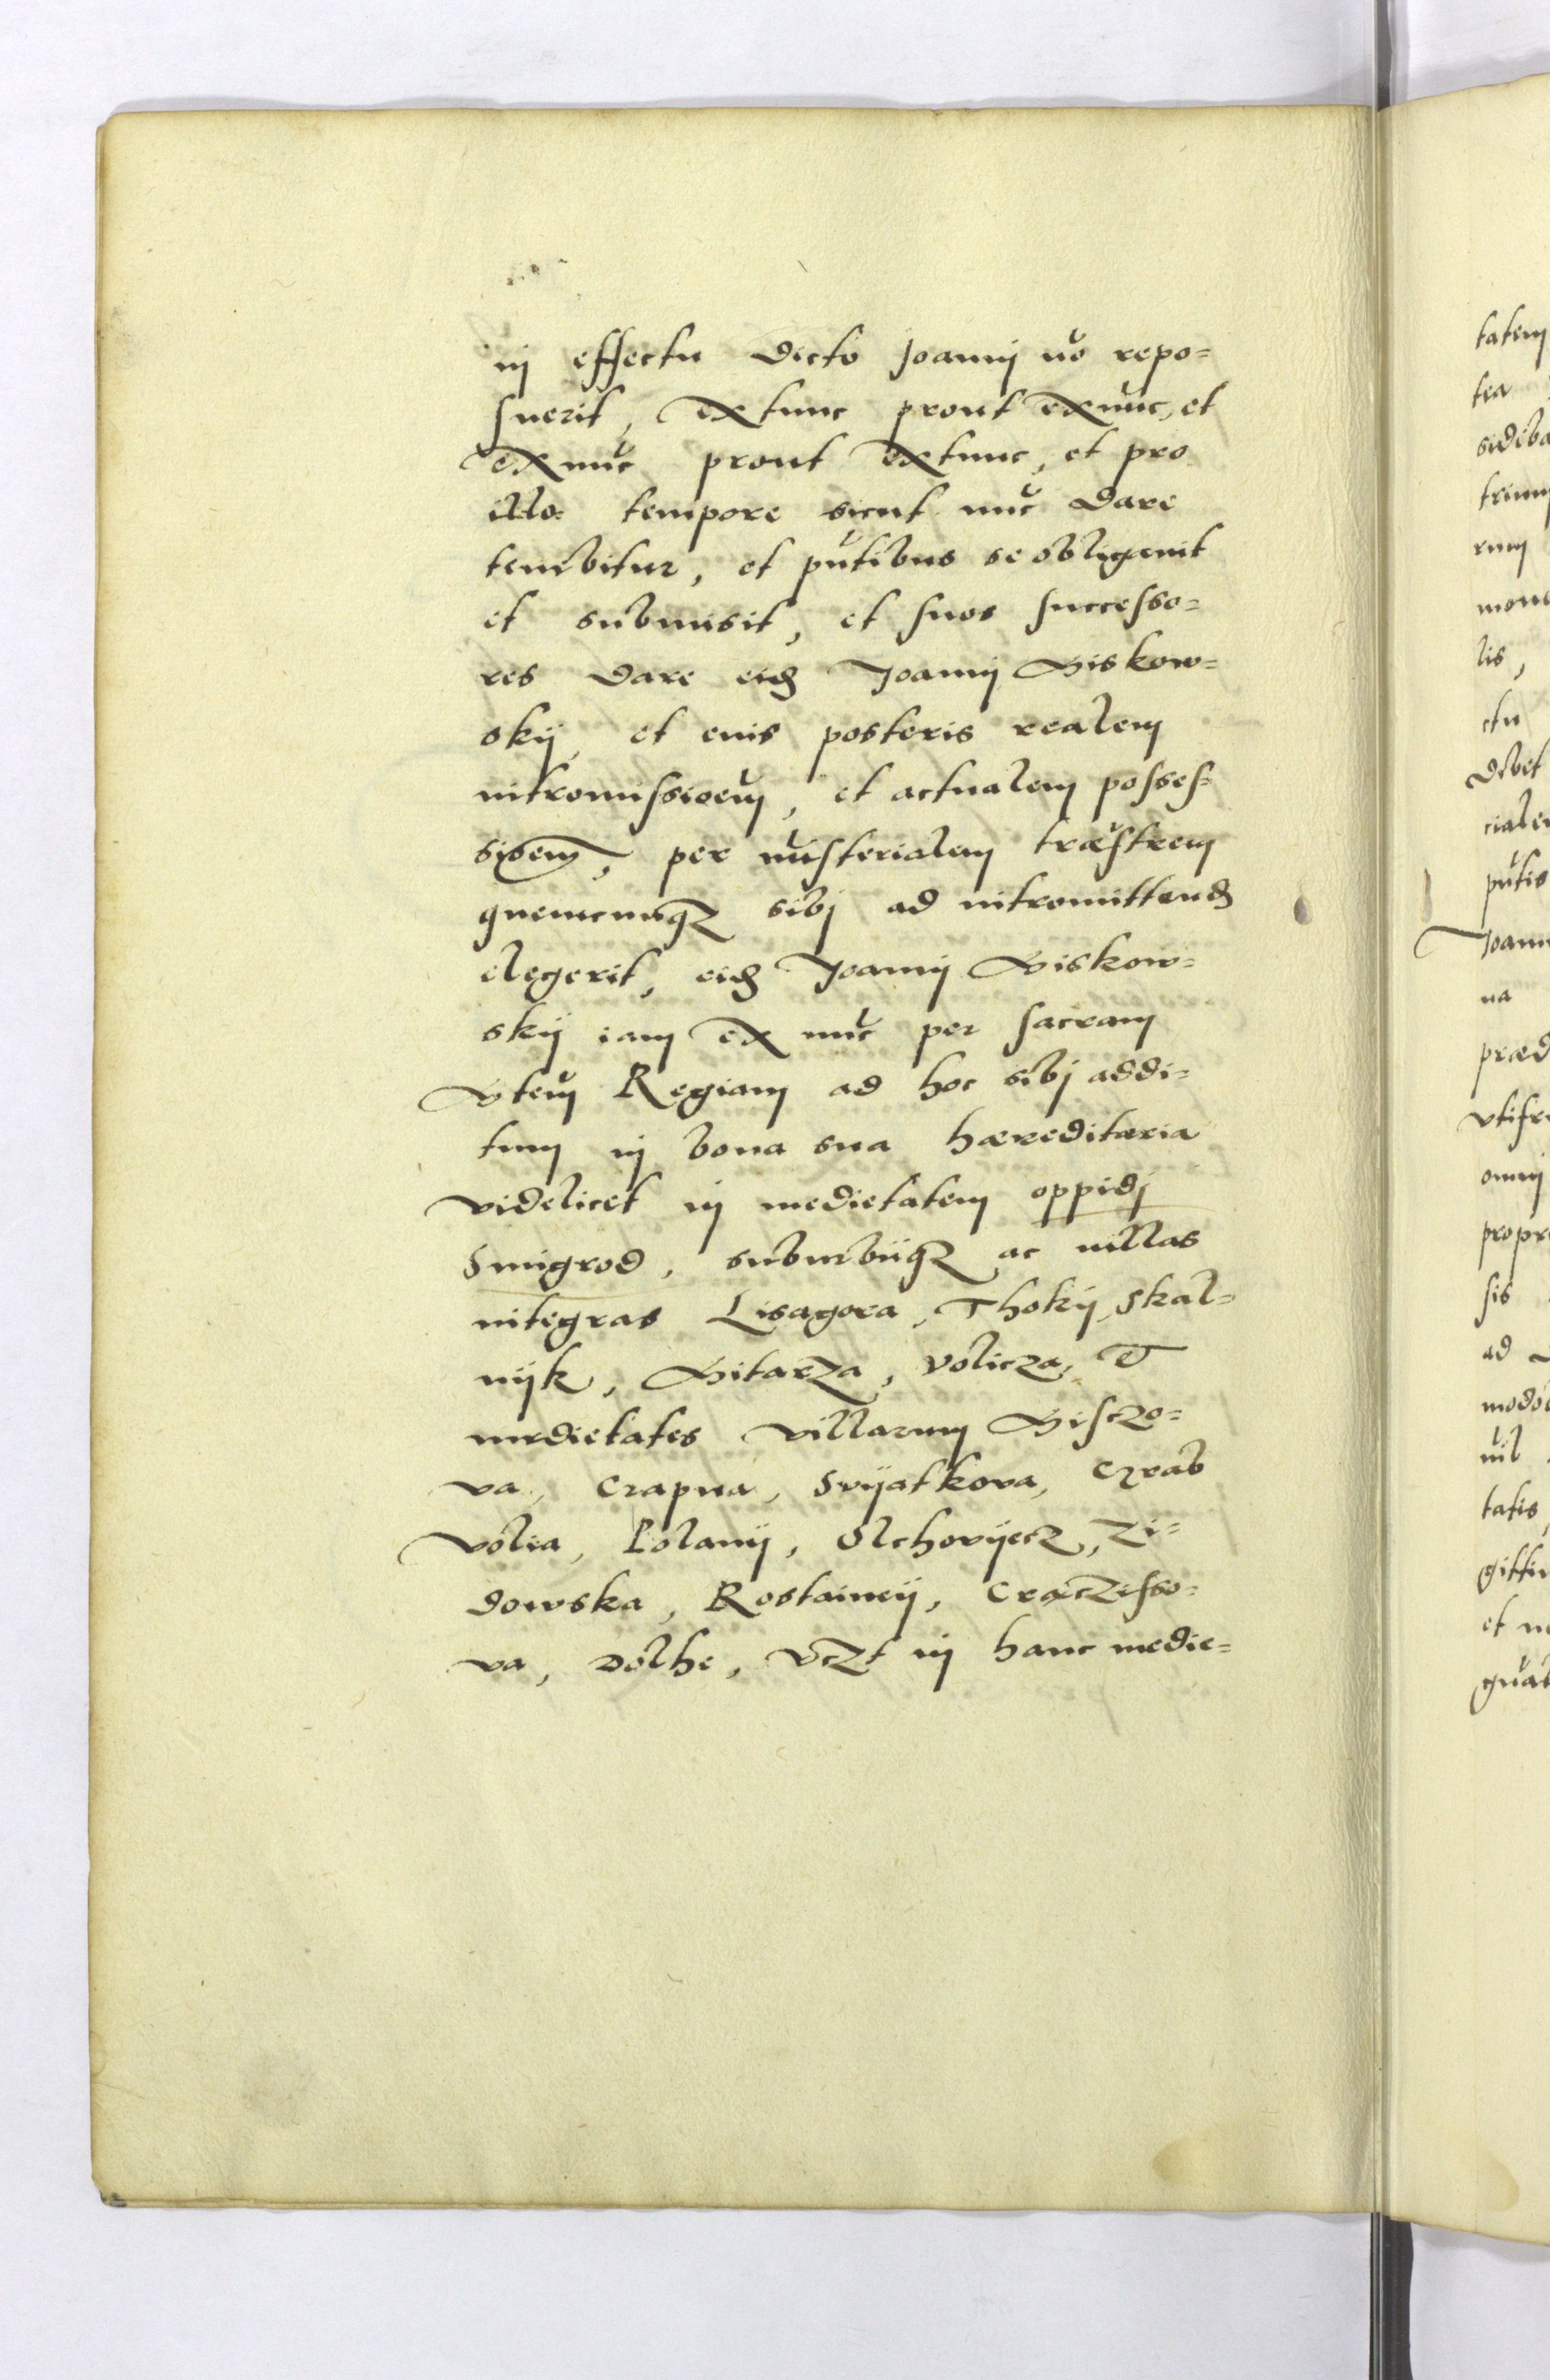 in effectu dicto Joanni nō repo=
suerit, extunc prout exnūc, et
exnūc prout extunc, et pro
illo tempore sicut nūc dare
tenebitur, et pūtibus se obligauit
et submisit, et suos successo=
res dare eid Joanni Siskow=
skij, et euis posteris realem
intromissioem, et actualem posses=
sioem, per misterialem træstrem
quemcunq sibj ad intromittend
elegerit, eid Joanni Siskow=
skij iam ex nūc per sacram
Mtem Regiam ad hoc sibj addi=
tum in bona sua hæreditaria
videlicet in medietatem oppidj
Smigrod, suburbiiq ac uillas
integras Lisagora, Thokij, Skal=
nijk, Sitarza, Volicza, Et
medietates villarum Hisczo=
va, Crapna, Svijatkova, Czrab
Volia, Polanij, Olchovijecz, Zi=
dowska, Rostainij, Craczisso=
va, Dolhe, Vczt in hanc medie=
tatem
tea
sideba
trium
rum
mone
lis,
ctu
Debet
ciale
pūtis
Joann
na
præd
vtifr
omnj
propr
sis
ad
modo
nīl
tatis,
gitti
et n
quab